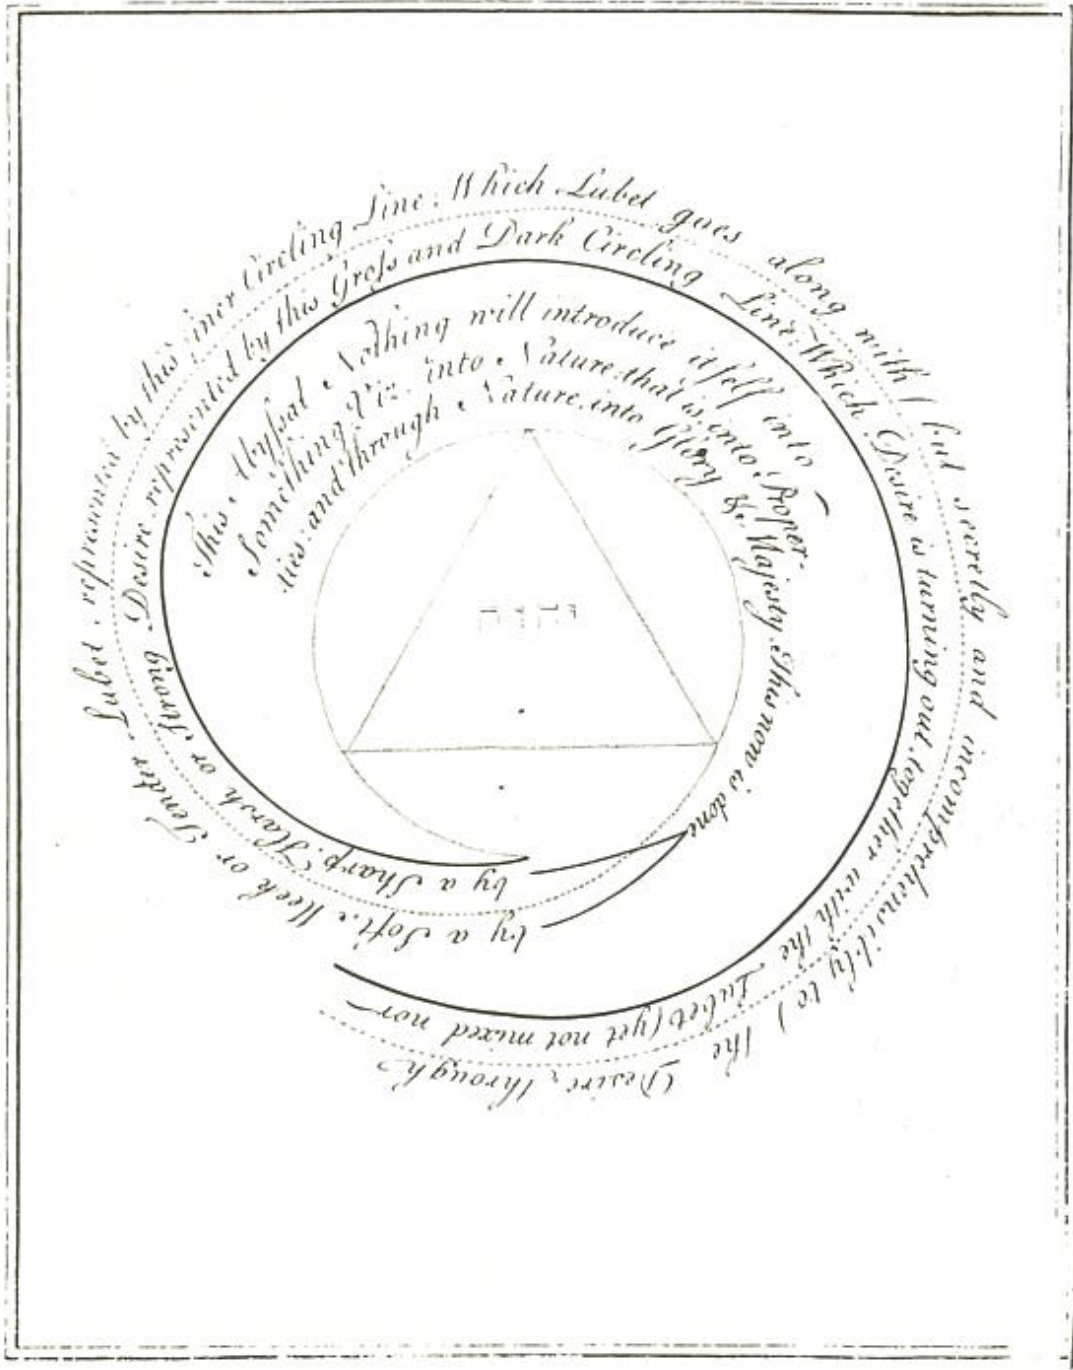 This Abyſsal Nothing will introduce itſelf into
Something Viz. into Nature: that is into Proper-
ties: and through Nature, into Glory & Majesty. This now is done
by a Sharp, Harsh or Strong Desire represented by this Groſs and Dark Circling Line: Which Desire is turning out, together with the Lubet (yet not mixed nor
by a Soft, Meek or Tender Lubet, represented by this finer Circling Line: Which Lubet goes along with (but secretly and incomprehensibly to) the Desire, through
יהוה